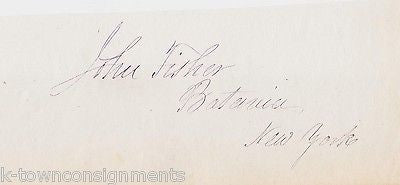 John Fisher
Batavia,
New York
k-townconsignments